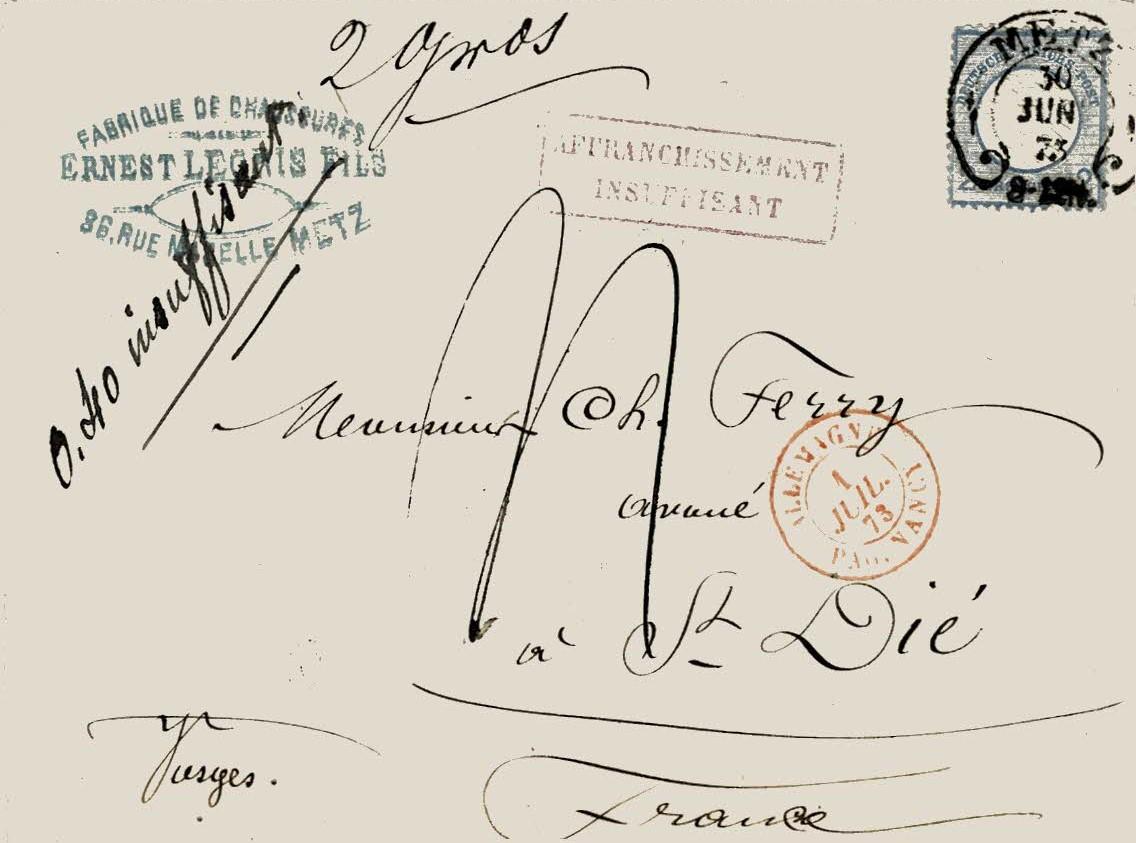 2 gros
FABRIQUE DE CHAUSSURES
ERNEST LEGRIS FILS
36, RUE MAZELLE METZ
0.40 insuffisant
AFFRANCHISSEMENT
INSUFFISANT
METZ
30
JUN
73
DEUTSCHE REICHS-POST
Monsieur Ch. Ferry
avoué
à St Dié
Vosges.
France
ALLEMAGNE
1
JUIL.
73
PAG. NANCY